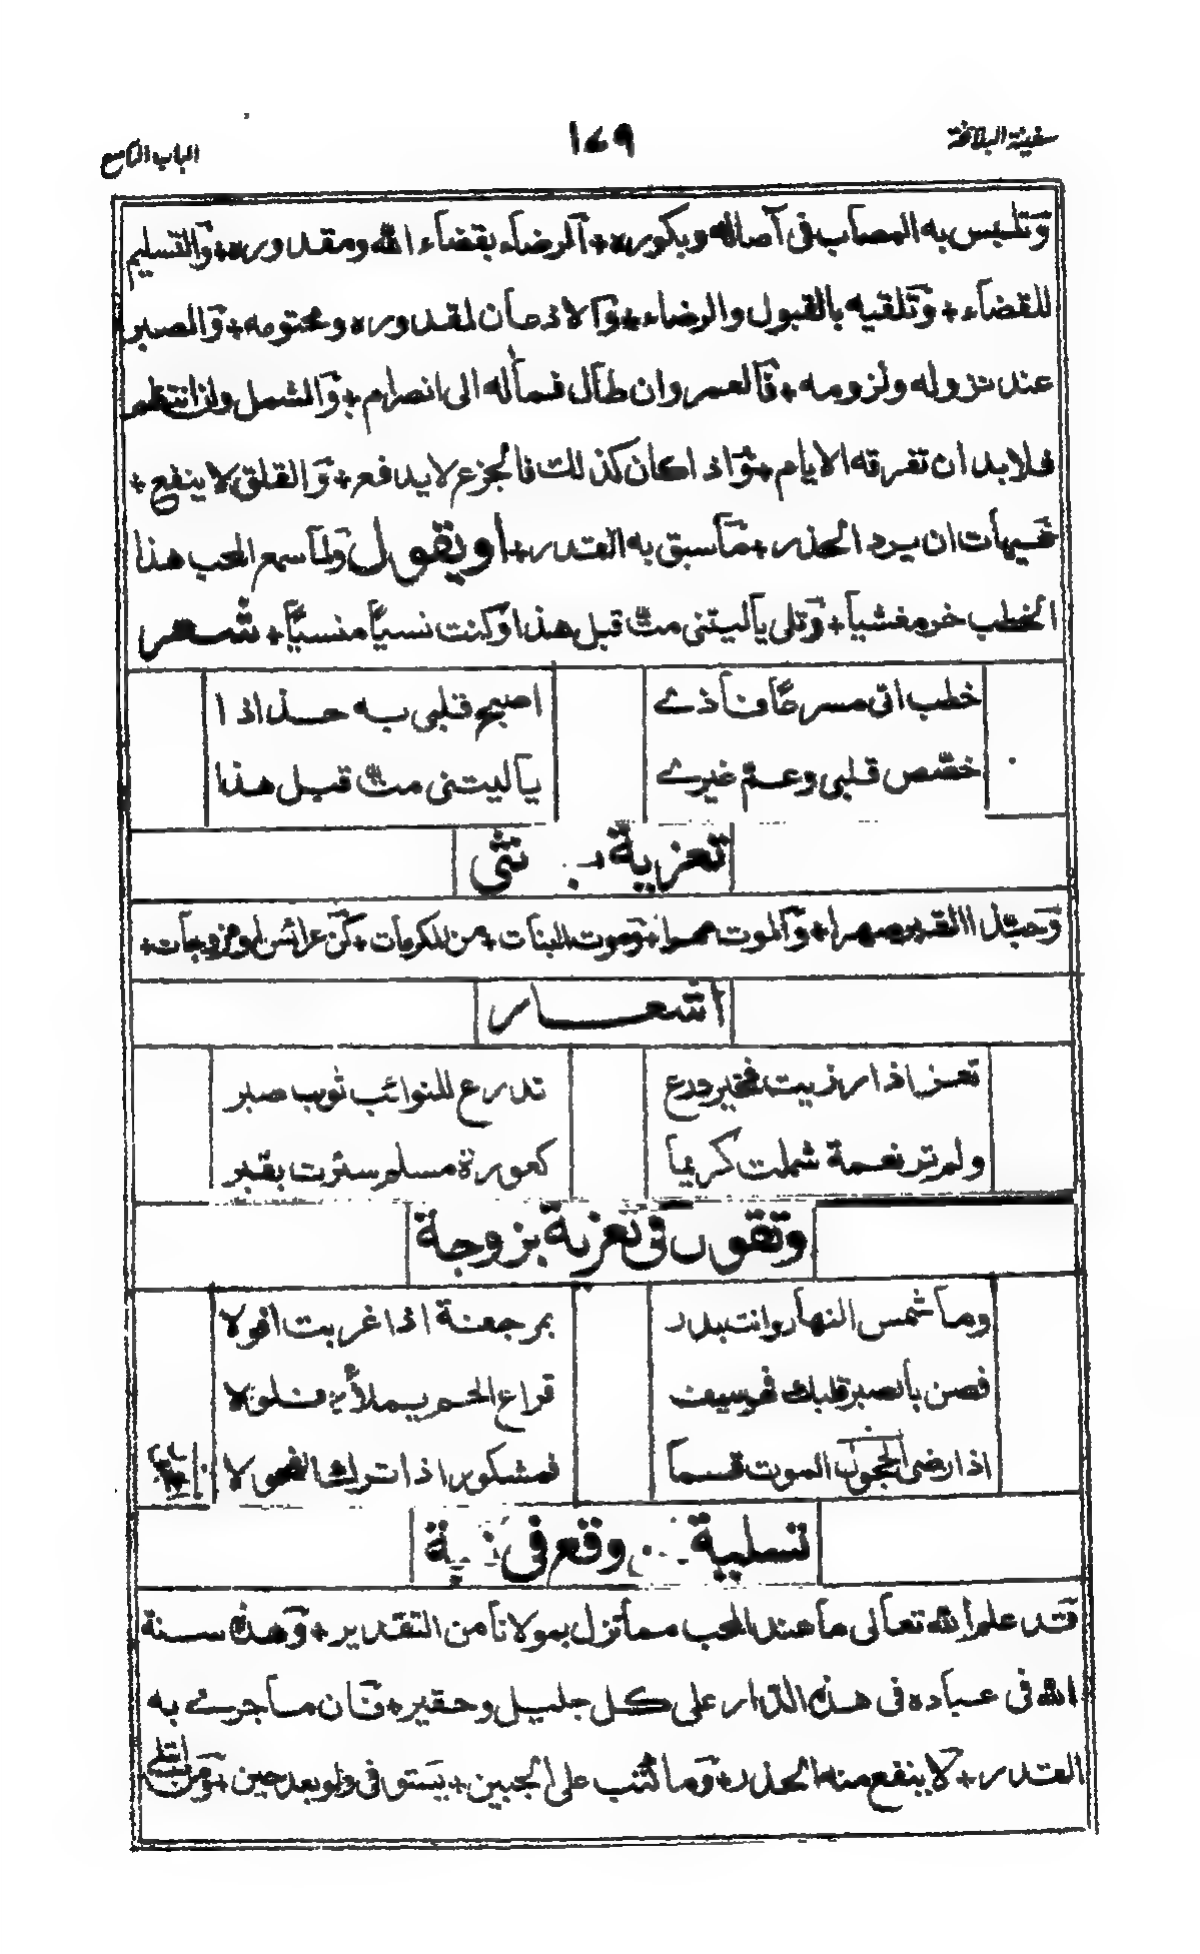 سفينة البلاغة
١٤٩
الباب التاسع
وتلبس به المصاب فى آصاله وبكوره + الرضاء بقضاء الله ومقدوره + والتسليم
للقضاء + وتلقيه بالقبول والرضاء + والاذعان لمقدوره ومحتومه + والصبر
عند نزوله ولزومه + فالعمر وان طال فمآله الى انصرام + والشمل ولئن انتظم
فلابد ان تفرقه الايام + واذا كان كذلك فالجزع لا يدافع + والقلق لا ينفع +
فهيهات ان يرد الحذر + ما سبق به القدر + او يقول ولما سمع المحب هذا
الخطب خر مغشيا + وتلى يا ليتنى متّ قبل هذا وكنت نسيًا منسيًا + شعر
خطب اتى مسرعًا فاذى
اصبح قلبى به جذاذا
خصّص قلبى وعمّ غيرى
يا ليتنى متّ قبل هذا
تعزية نثى
وحبّذا القبر صهرا + والموت مهرا + وموت البنات + من المكرمات + كن عرائس او مزوجات +
اشعار
تعز اذا رزيت فخير درع
تدرع للنوائب ثوب صبر
ولم تر نعمة شملت كريما
كعورة مسلم سترت بقبر
وتقول فى تعزية بزوجة
وما شمس النهار وانت بدر
بمرجعنة اذا غربت افولا
فصن بالصبر قلبك فهو سيف
قراع الهم يملأه فلولا
اذا رضى الموت قسما
فمشكور اذا ترك الفحولا
تسلية وقع فى
قد علم الله تعالى ما عند المحب مما نزل بمولانا من التقدير + وهذه سنة
الله فى عباده فى هذه الدار على كل جليل وحقير + فان ما جرى به
القدر + لا ينفع منه الحذر + وما كتب على الجبين + يستوفى ولو بعد حين + ومن ابتلى